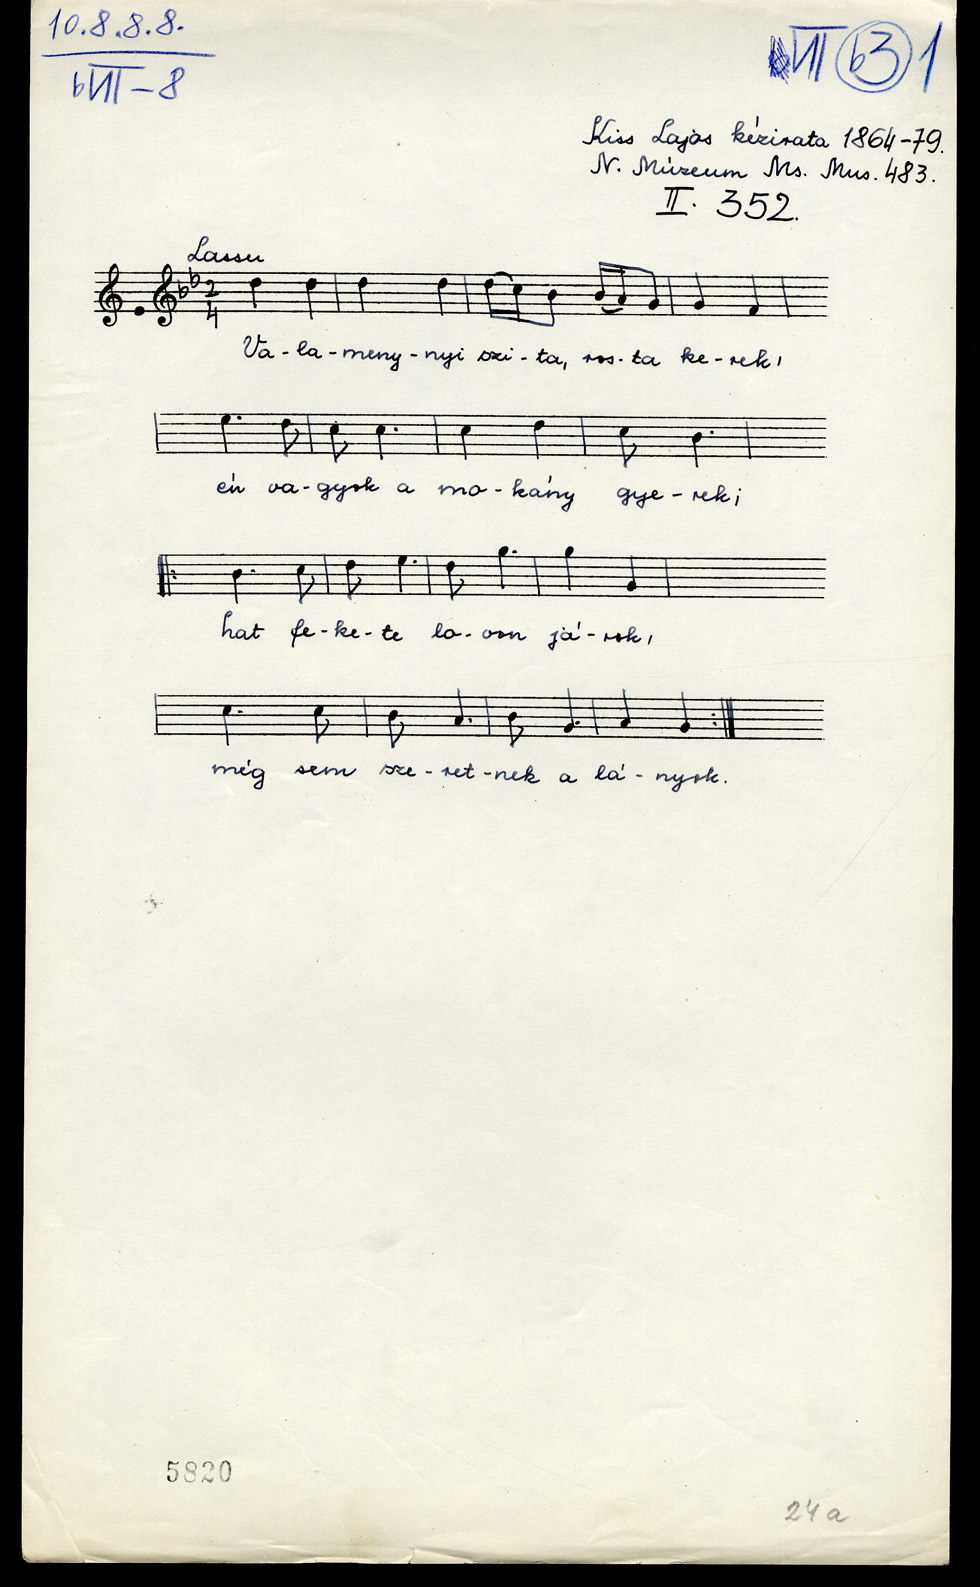 10.8.8.8.
bVII-8
VII b3 1
Kiss Lajos kézirata 1864-79.
N. Múzeum Ms. Mus. 483.
II. 352.
Lassu
2
4
Va-la-meny-nyi szi-ta, ros-ta ke-rek,
én va-gyok a mo-kány gye-rek;
hat fe-ke-te lo-von já-rok,
még sem sze-ret-nek a lá-nyok.
5820
24a